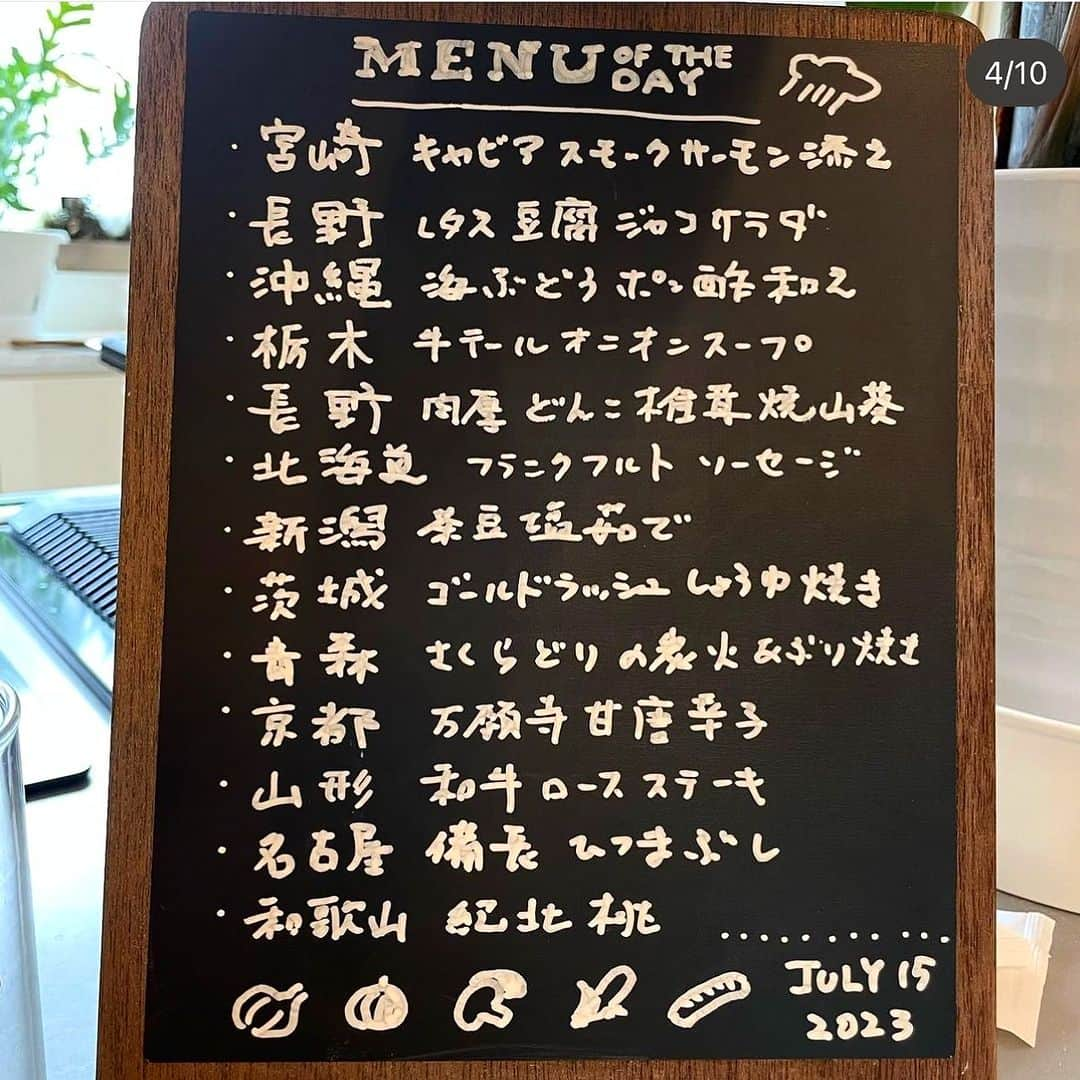 4/10
MENU OF THE DAY
・宮崎 キャビア スモークサーモン添え
・長野 レタス豆腐ジャコサラダ
・沖縄 海ぶどうポン酢和え
・栃木 牛テールオニオンスープ
・長野 肉厚どんこ椎茸焼山葵
・北海道 フランクフルト ソーセージ
・新潟 茶豆塩茹で
・茨城 ゴールドラッシュしょうゆ焼き
・青森 さくらどりの炭火あぶり焼き
・京都 万願寺甘唐辛子
・山形 和牛ロースステーキ
・名古屋 備長ひつまぶし
・和歌山 紀北桃
JULY 15
2023